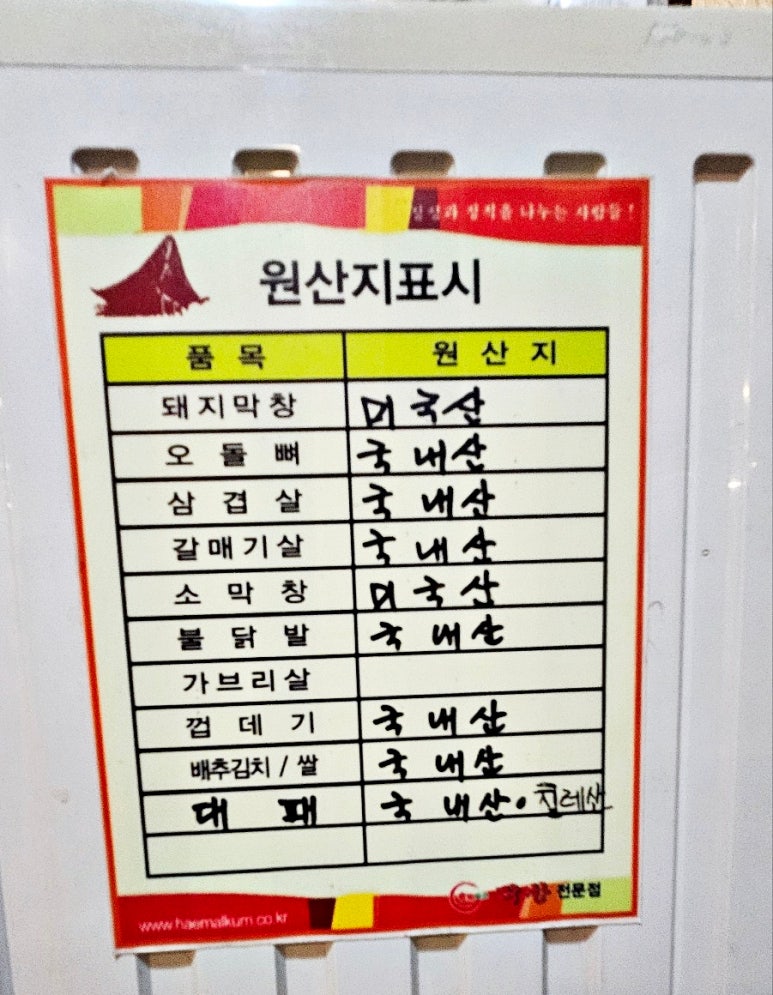 정성과 정직을 나누는 사람들!
원산지표시
품 목 원 산 지
돼지막창 미국산
오 돌 뼈 국내산
삼 겹 살 국내산
갈매기살 국내산
소 막 창 미국산
불 닭 발 국내산
가브리살
껍 데 기 국내산
배추김치 / 쌀 국내산
대 패 국내산 · 칠레산
막창 전문점
www.haemalkum.co.kr